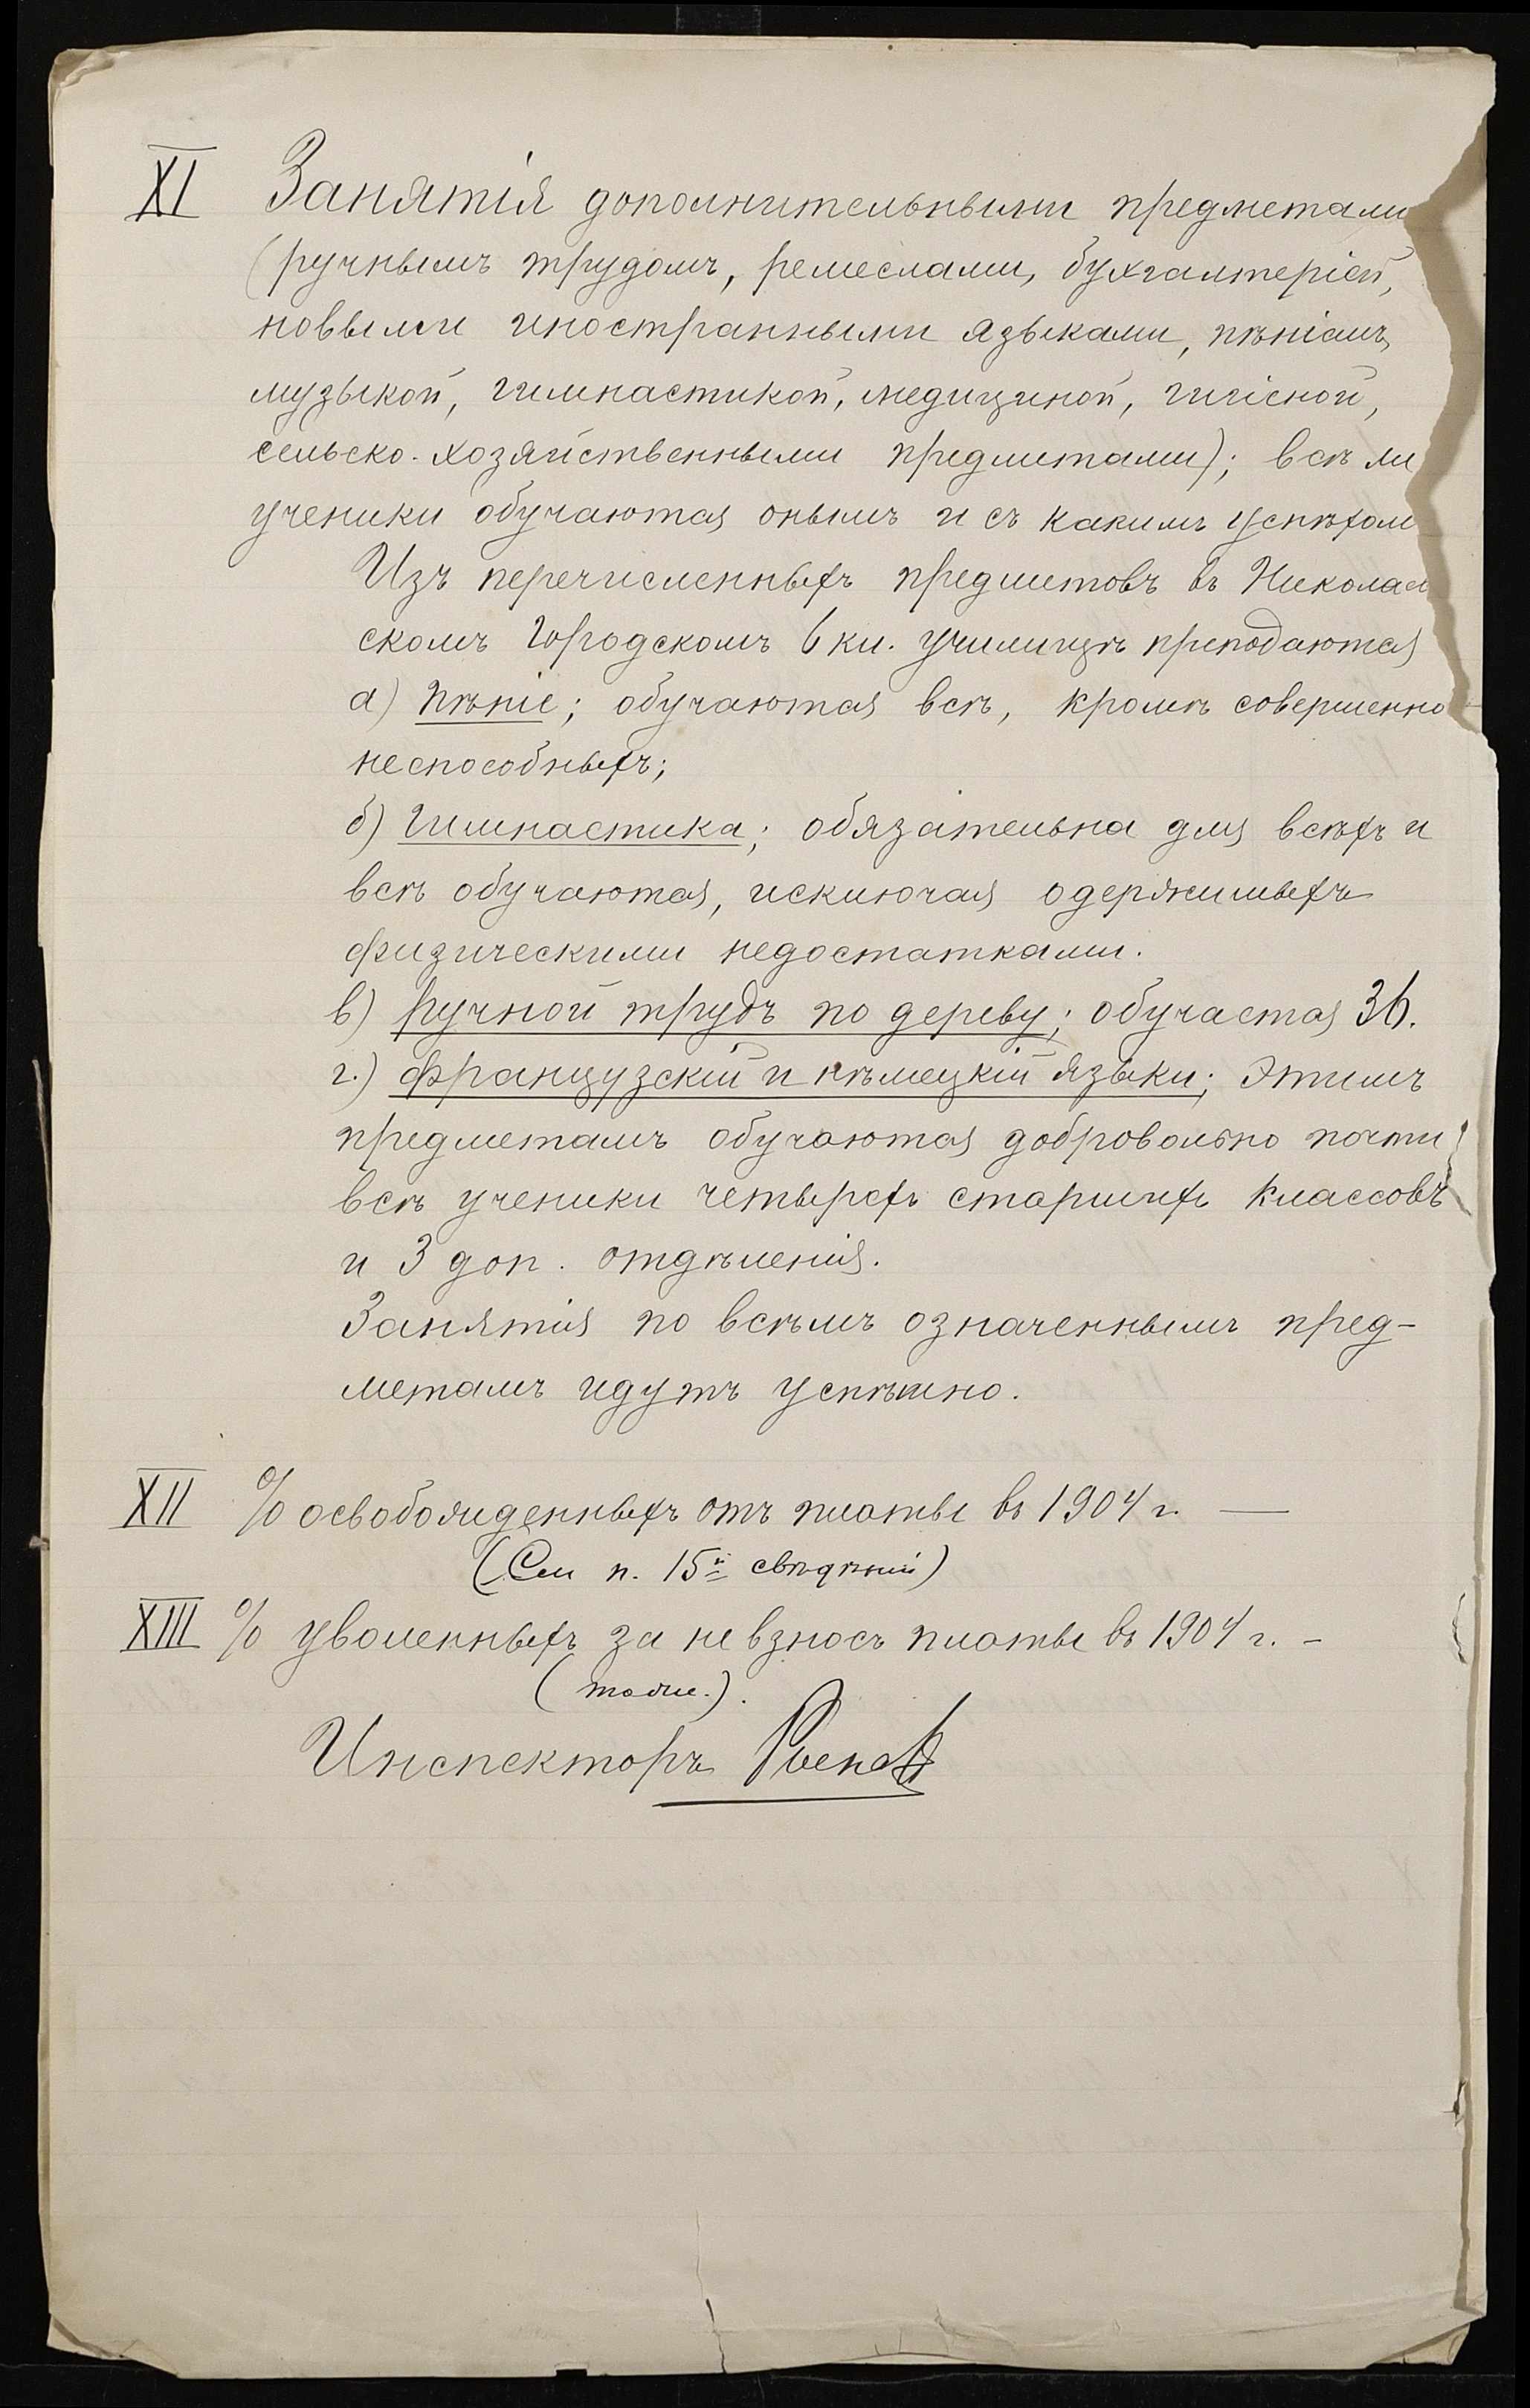 XI Занятія дополнительными предметами
(ручнымъ трудомъ, ремеслами, бухгалтеріей,
новыми иностранными языками, пѣніемъ,
музыкой, гимнастикой, медициной, гигіеной,
сельско-хозяйственными предметами); всѣ ли
ученики обучаются онымъ и съ какимъ успѣхом
Изъ перечисленныхъ предметовъ въ Николаев
скомъ Городскомъ 6 кл. училищѣ преподаются
а) пѣніе; обучаются всѣ, кромѣ совершенно
неспособныхъ;
б) Гимнастика; обязательна для всѣхъ и
всѣ обучаются, исключая одержимыхъ
физическими недостатками.
в) ручной трудъ по дереву; обучается 36.
г.) французскій и нѣмецкій языки; Этимъ
предметамъ обучаются добровольно почти
всѣ ученики четырехъ старшихъ классовъ
и 3 доп. отдѣленія.
Занятія по всѣмъ означеннымъ пред-
метамъ идутъ успѣшно.
XII % освобожденныхъ отъ платы въ 1904 г. —
(См п. 15й свѣдѣній)
XIII % уволенныхъ за невзносъ платы въ 1904 г. -
(тоже.).
Инспекторъ